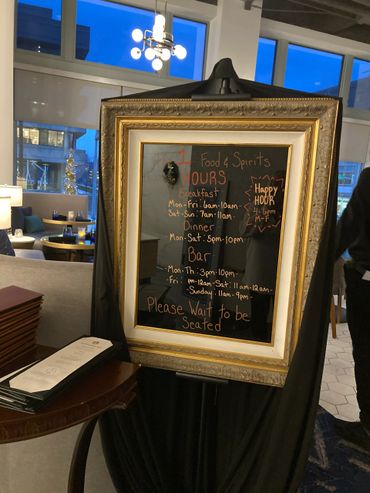 Food & Spirits
HOURS
Breakfast
Mon-Fri: 6am-10am
Sat-Sun: 7am-11am
Dinner
Mon-Sat: 5pm-10pm
Bar
Mon-Th: 3pm-10pm
Fri: pm-12am-Sat: 11am-12am
Sunday: 11am-9pm
Please Wait to be
Seated
Happy
HOUR
4-6pm
M-F